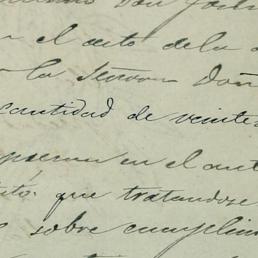 Don
el acto de la
la Señora Doñ
cantidad de veinte
en el act
que tratandose
sobre cumplim